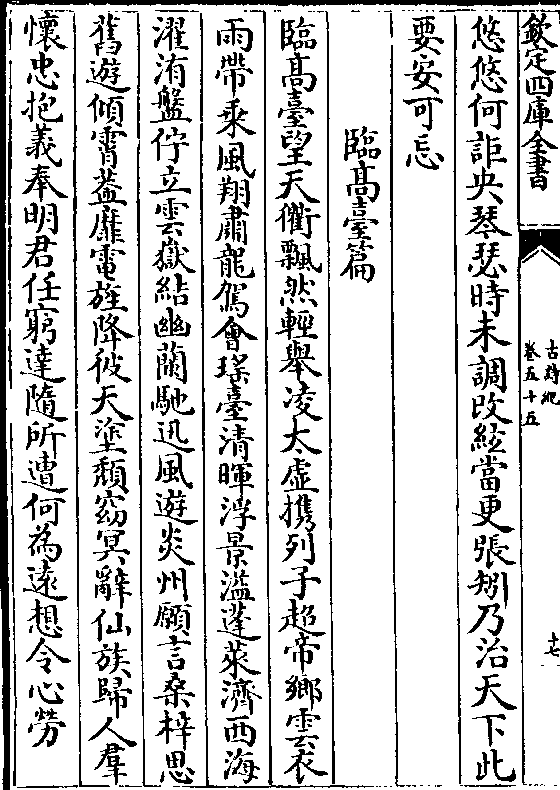 欽定四庫全書
古詩紀
卷五十五
十七
悠悠何詎央琴瑟時未調改絃當更張矧乃治天下此
要安可忘
臨高臺篇
臨高臺望天衢飄然輕舉凌太虛携列子超帝鄉雲衣
雨帶乗風翔肅龍駕會瑤臺清暉浮景溢蓬萊濟西海
濯洧盤佇立雲嶽結幽蘭馳迅風遊炎州願言桑梓思
舊遊傾霄蓋靡電旌降彼天塗頽窈冥辭仙族歸人羣
懷忠抱義奉明君任窮達隨所遭何為遠想令心勞